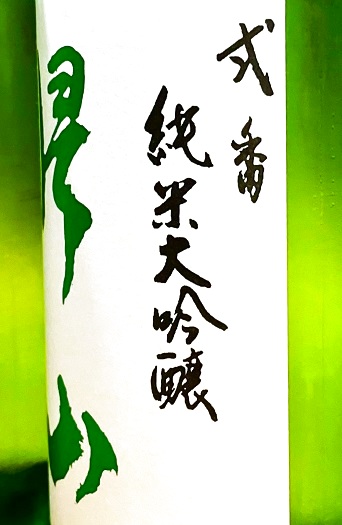 弐番
純米大吟醸
山